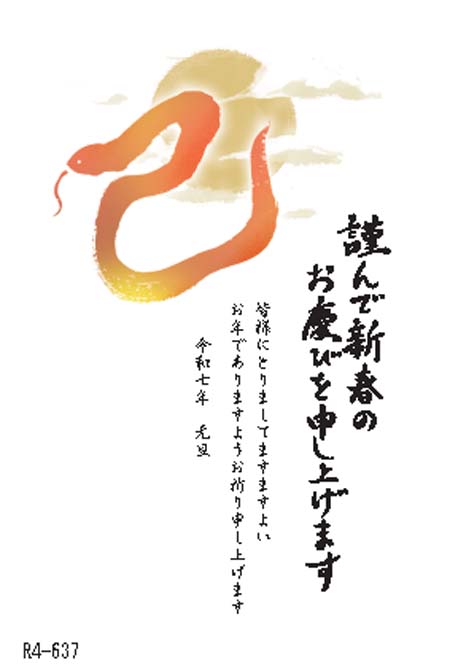 謹んで新春の
お慶びを申し上げます
皆様にとりましてますますよい
お年でありますようお祈り申し上げます
令和七年 元旦
R4-637